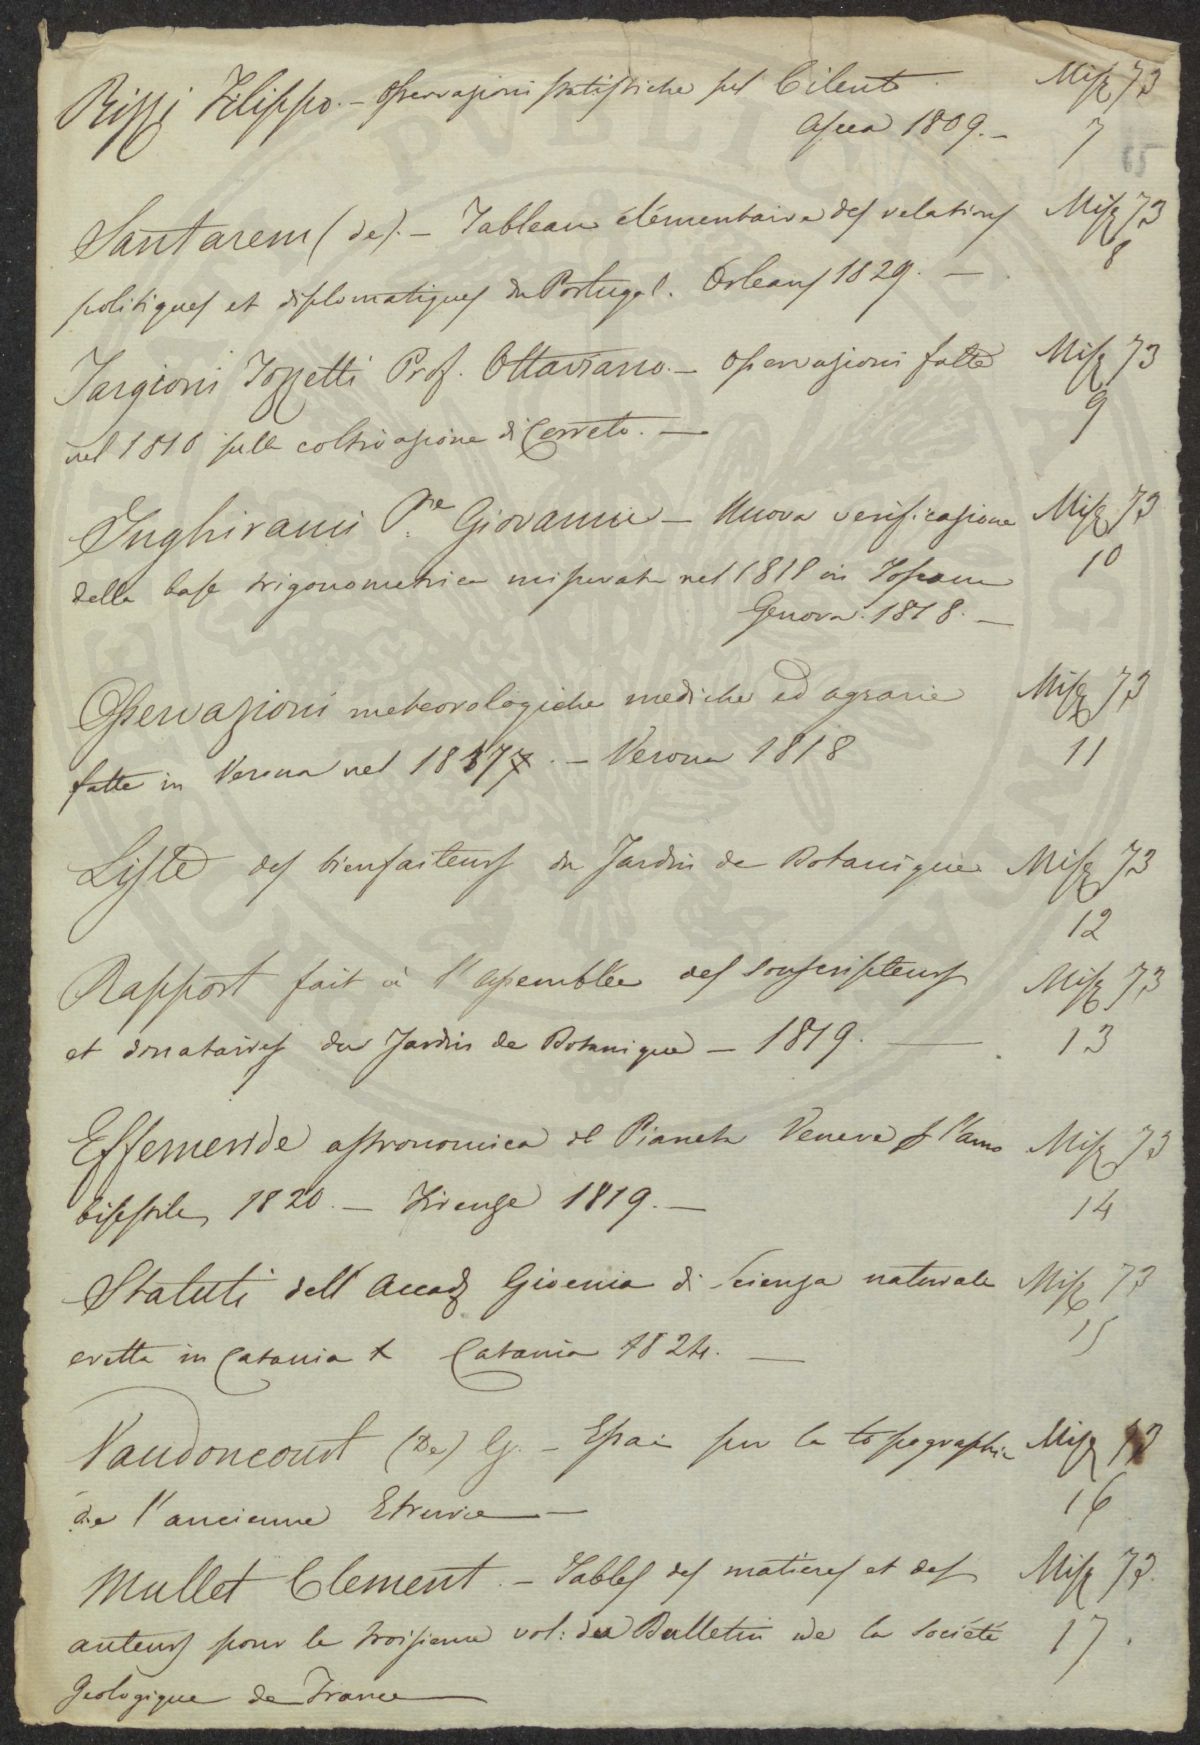 Rizzi Filippo. – Osservazioni statistiche sul Cilento. Misz 73
Ascea 1809. – 7
Santarem (de). – Tableau élémentaire des relations Misz 73
8
politiques et diplomatiques du Portugal. Orleans 1829. –
Targioni Tozzetti Prof. Ottaviano. – Osservazioni fatte Misz 73
nel 1810 sulla coltivazione di Cerreto. – 9
Inghirami P.re Giovanni – Nuova verificazione Misz 73
della base trigonometrica misurata nel 1818 in Toscana 10
Genova. 1818. –
Osservazioni meteorologiche mediche ed agrarie Misz 73
fatte in Verona nel 1817. – Verona 1818 11
Liste des bienfaiteurs du Jardin de Botanique Misz 73
12
Rapport fait à l'assemblée des souscripteurs Misz 73
et donataires du Jardin de Botanique – 1819. – 13
Effemeride astronomica del Pianeta Venere p l'anno Misz 73
bisestile 1820. – Firenze 1819. – 14
Statuti dell' Accad Gioenia di Scienza naturale Misz 73
eretta in Catania Catania 1824. – 15
Vaudoncourt (De) G. – Essai sur la topographie Misz 73
de l'ancienne Etrurie – 16
Mullet Clement. – Tables des matieres et des Misz 73.
auteurs pour le troisieme vol: du Bulletin de la Société 17.
Geologique de France –